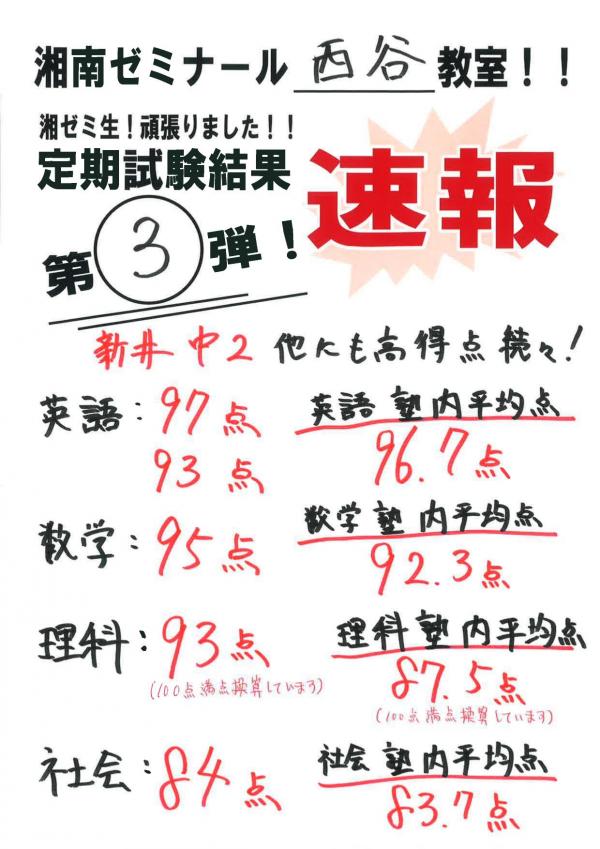 湘南ゼミナール 西谷 教室！！
湘ゼミ生！頑張りました！！
定期試験結果
速報
第3弾！
新井中2 他にも高得点続々！
英語：97点
93点
英語 塾内平均点
96.7点
数学：95点
数学 塾内平均点
92.3点
理科：93点
(100点満点換算しています)
理科 塾内平均点
87.5点
(100点満点換算しています)
社会：84点
社会 塾内平均点
83.7点